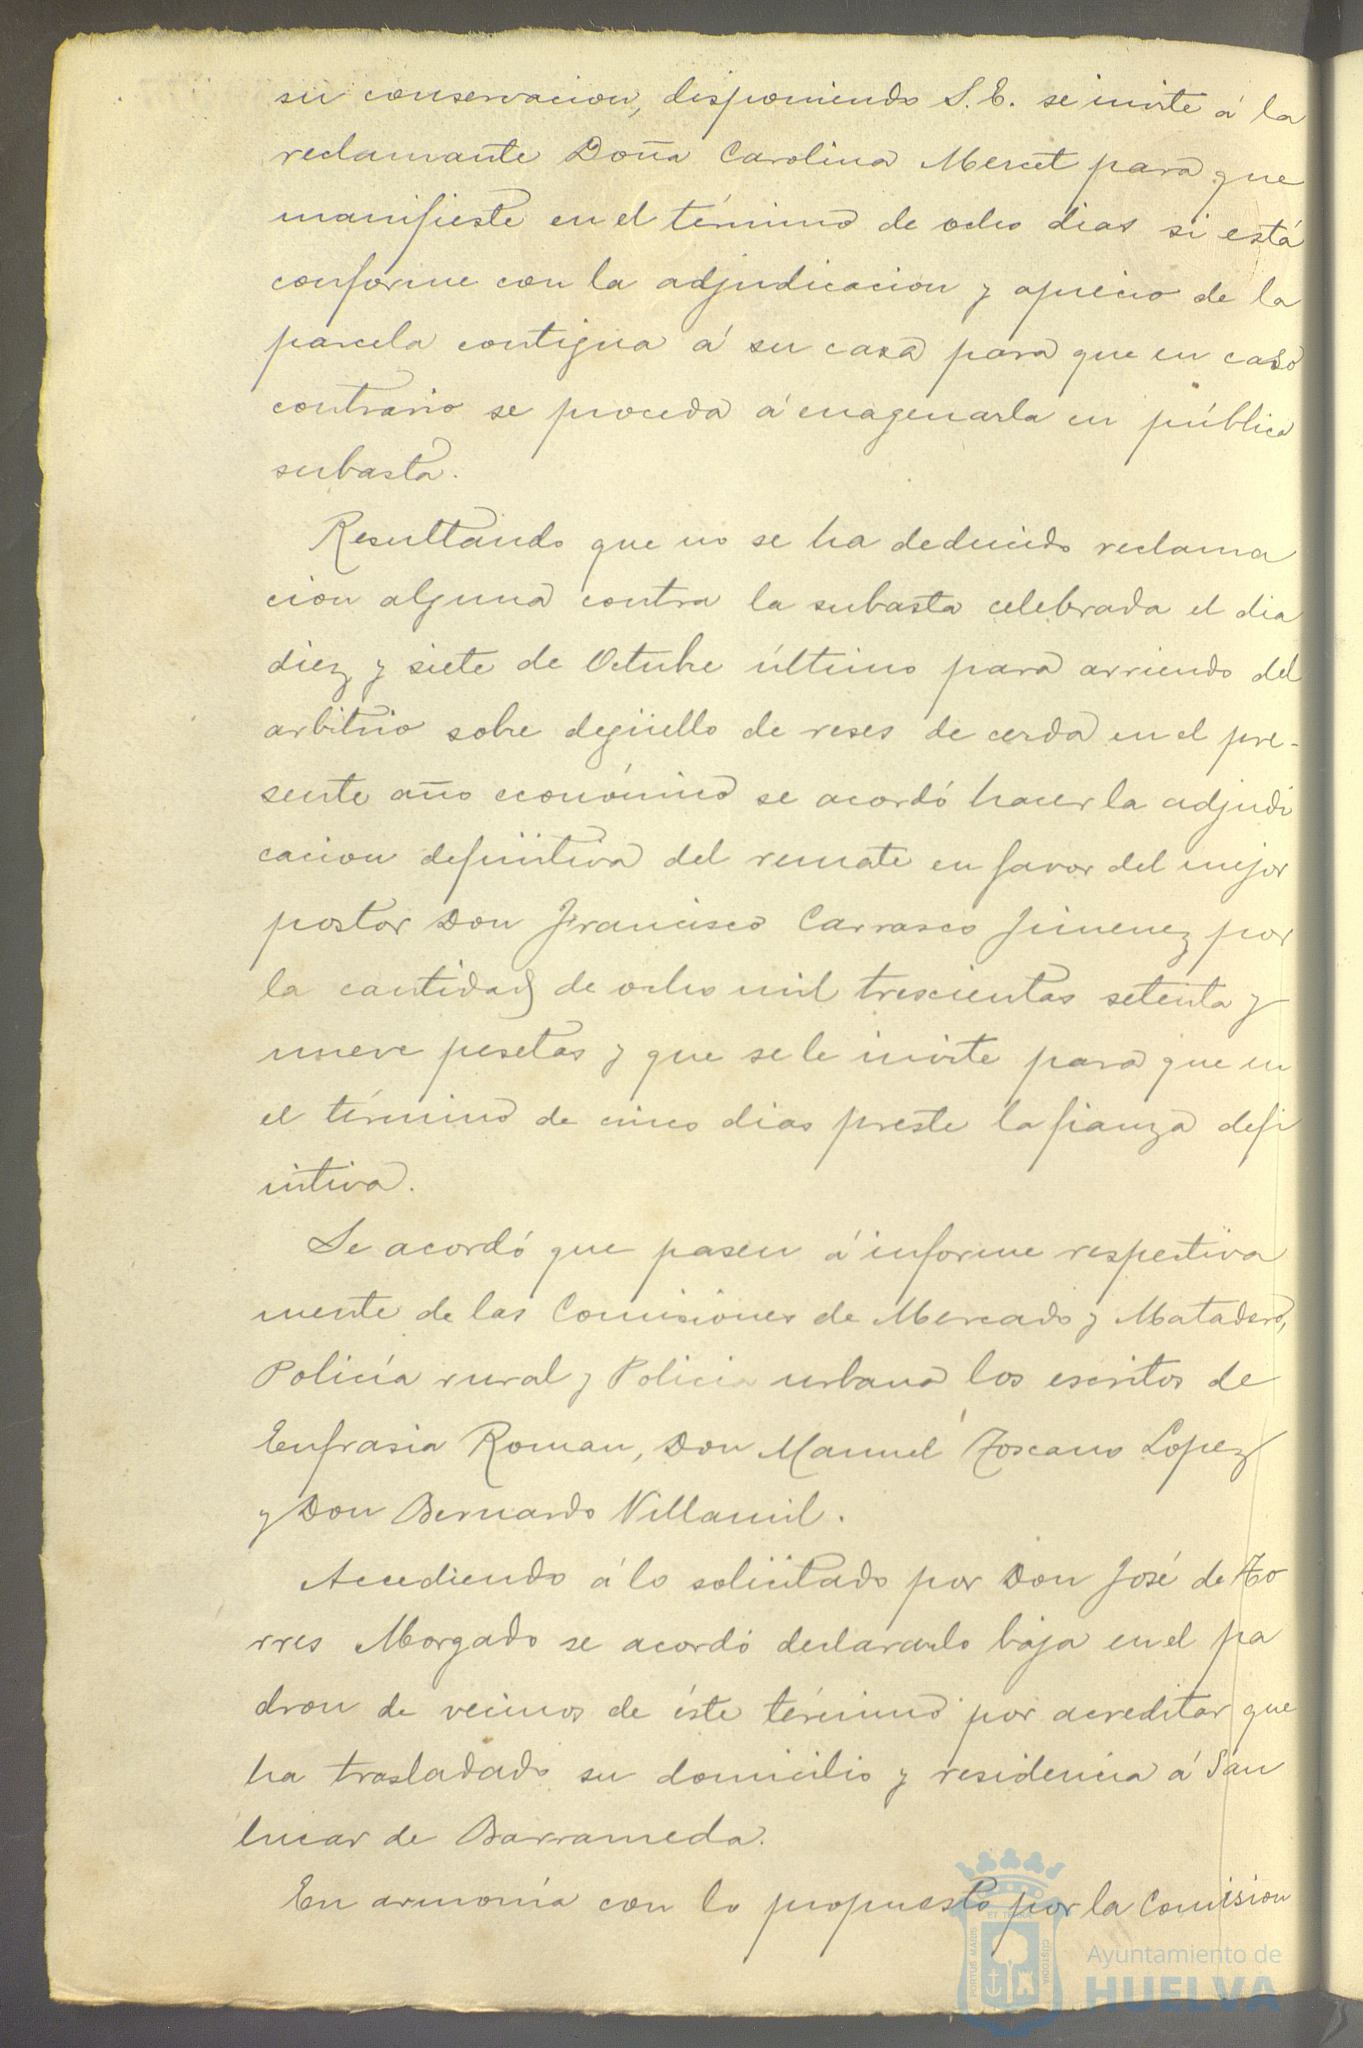 su conservacion, disponiendo S.E. se invite á la
reclamante Doña Carolina Mercet para que
manifieste en el término de ocho dias si está
conforme con la adjudicacion y aprecio de la
parcela contigua á su casa para que en caso
contrario se proceda á enagenarla en pública
subasta.
Resultando que no se ha deducido reclama
cion alguna contra la subasta celebrada el dia
diez y siete de Octubre último para arriendo del
arbitrio sobre degüello de reses de cerda en el pre-
sente año económico se acordó hacer la adjudi
cacion definitiva del remate en favor del mejor
postor Don Francisco Carrasco Jimenez por
la cantidad de ocho mil trescientas setenta y
nueve pesetas y que se le invite para que en
el término de cinco dias preste la fianza defi
nitiva.
Se acordó que pasen á informe respectiva
mente de las Comisiones de Mercado y Matadero,
Policía rural y Policia urbana los escritos de
Eufrasia Roman, Don Manuel Toscano Lopez
y Don Bernardo Villamil.
Accediendo á lo solicitado por Don José de To
rres Morgado se acordó declararlo baja en el pa
dron de vecinos de éste término por acreditar que
ha trasladado su domicilio y residencia á San
lucar de Barrameda.
En armonía con lo propuesto por la Comision
PORTUS MARIS
ET TERRAE
CUSTODIA
Ayuntamiento de
HUELVA